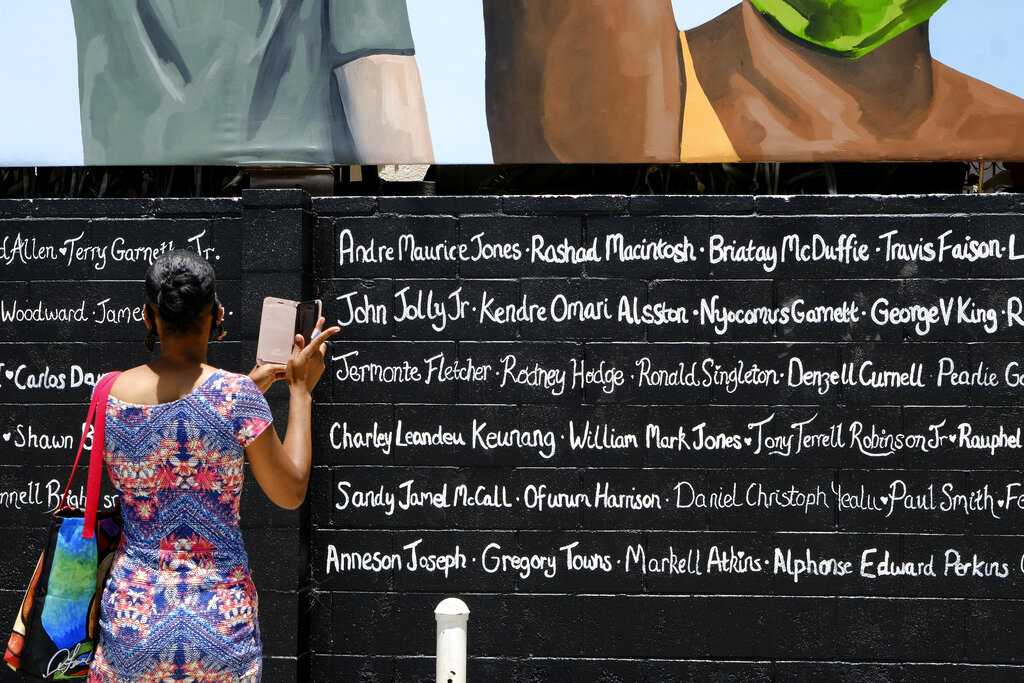 Allen♥Terry Garnett Jr.
Andre Maurice Jones·Rashad Macintosh·Briatay McDuffie·Travis Faison·L
Woodward·Jame
John Jolly Jr·Kendre Omari Alsston·Nyocomus Garnett·George V King·R
♥Carlos Da
Jermonte Fletcher·Rodney Hodge·Ronald Singleton·Denzell Curnell Pearlie Go
♥Shawn B
Charley Leandeu Keunang·William Mark Jones♥Tony Terrell Robinson Jr♥Rauphel
nnell Brigh sr
Sandy Jamel McCall·Ofurum Harrison·Daniel Christoph Yealu♥Paul Smith♥Fe
Anneson Joseph·Gregory Towns·Markell Atkins·Alphonse Edward Perkins